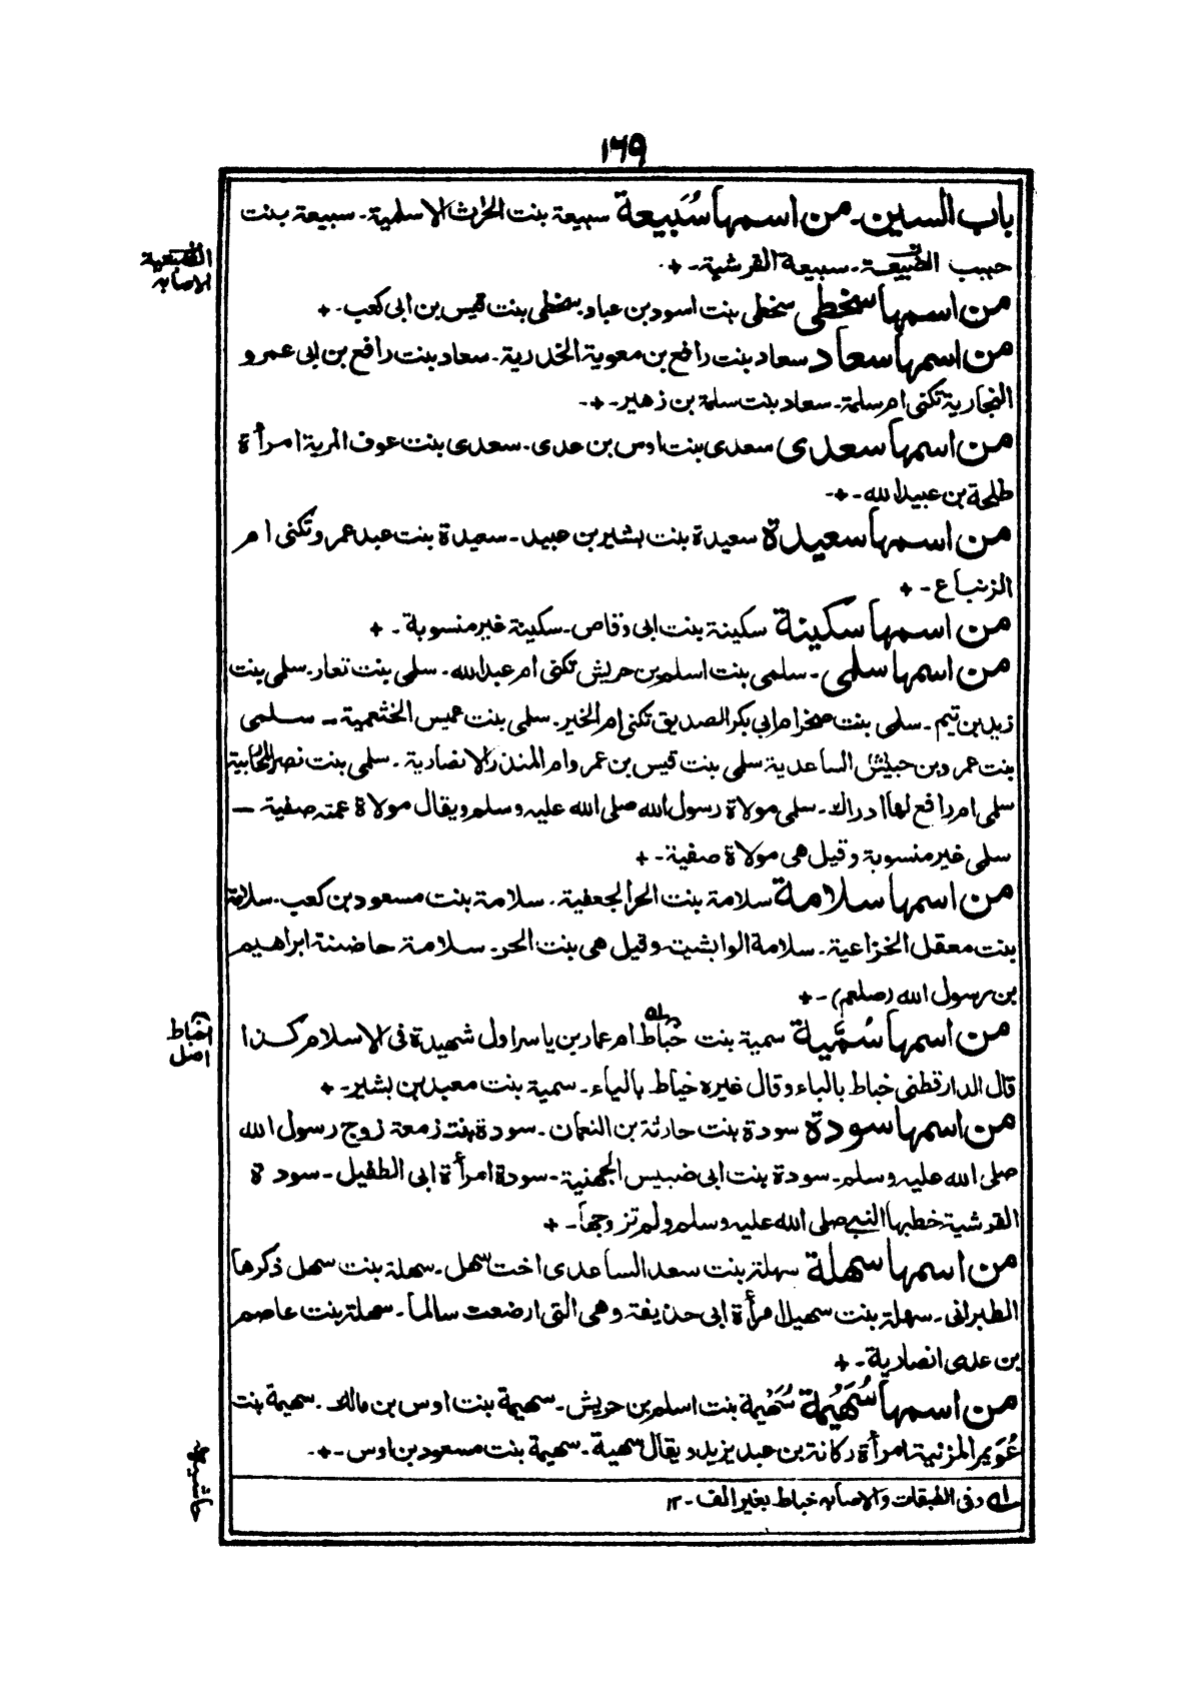 ١٦٩
باب السين۔ من اسمها سُبَيعة سبيعة بنت الحارث الاسلمية۔ سبيعة بنت
حبيب الضبيعية۔ سبيعة القرشية۔+
الضبيعية
الاصابه
من اسمها سخطى سخطى بنت اسود بن عباد۔ سخطى بنت قيس بن ابى كعب۔+
من اسمها سعاد سعاد بنت رافع بن معوية الخدرية۔ سعاد بنت رافع بن ابى عمرو
النجارية تكنى ام سلمة۔ سعاد بنت سلمة بن زهير۔+۔
من اسمها سعدى سعدى بنت اوس بن عدى۔ سعدى بنت عوف المرية امرأة
طلحة بن عبيدالله۔+۔
من اسمها سعيدة سعيدة بنت بشير بن عبيد۔ سعيدة بنت عبد عمر وتكنى ام
الزنباع۔+
من اسمها سكينة سكينة بنت ابى وقاص۔ سكينة غير منسوبة۔+
من اسمها سلمى۔ سلمى بنت اسلم بن حريش تكنى ام عبدالله۔ سلمى بنت تعار۔ سلمى بنت
زيد بن تيم۔ سلمى بنت صخر ام ابى بكر الصديق تكنى ام الخير۔ سلمى بنت عميس الخثعمية۔ سلمى
بنت عمرو بن حبيش الساعدية سلمى بنت قيس بن عمرو ام المنذر الانصارية۔ سلمى بنت نصر المحاربية
سلمى ام رافع لها ادراك۔ سلمى مولاة رسول الله صلى الله عليه وسلم ويقال مولاة عمته صفية۔
سلمى غير منسوبة وقيل هى مولاة صفية۔+
من اسمها سلامة سلامة بنت الحر الجعفية۔ سلامة بنت مسعود بن كعب۔ سلامة
بنت معقل الخزاعية۔ سلامة الوابشية وقيل هى بنت الحر۔ سلامة حاضنة ابراهيم
بن رسول الله (صلعم)۔+
من اسمها سُمَيّة سمية بنت خباط ام عمار بن ياسر اول شهيدة فى الاسلام كذا
اخباط
اصل
قال الدارقطنى خباط بالباء وقال غيره خياط بالياء۔ سمية بنت معبد بن بشير۔+
من اسمها سودة سودة بنت حارثة بن النعمان۔ سودة بنت زمعة زوج رسول الله
صلى الله عليه وسلم۔ سودة بنت ابى ضبيس الجهنية۔ سودة امرأة ابى الطفيل۔ سودة
القرشية خطبها النبى صلى الله عليه وسلم ولم تزوجها۔+
من اسمها سهلة سهلة بنت سعد الساعدى اخت سهل۔ سهلة بنت سهل ذكرها
الطبرانى۔ سهلة بنت سهيل امرأة ابى حذيفة وهى التى ارضعت سالما۔ سهلة بنت عاصم
بن عدى انصارية۔+
من اسمها سُهَيْمَة سُهَيْمة بنت اسلم بن حريش۔ سهيمة بنت اوس بن مالك۔ سهيمة بنت
عُوَيمر المزنية امرأة ركانة بن عبد يزيد ويقال سهية۔ سهيمة بنت مسعود بن اوس۔+۔
حاشيه
له وفى الطبقات والاصابه خباط بغير الف۔١٢